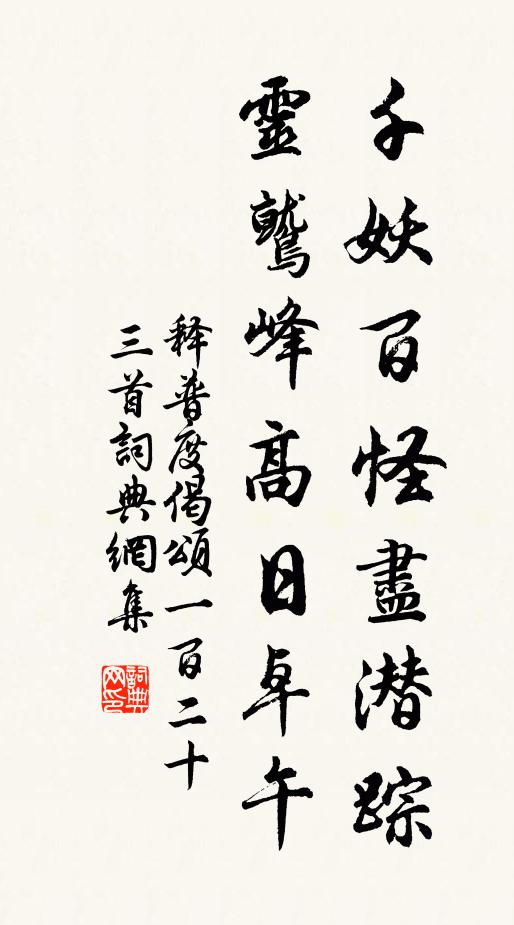 千妖百怪盡潛踪
靈鷲峰高日卓午
释普度偈頌一百二十
三首詞典網集
詞典
网印